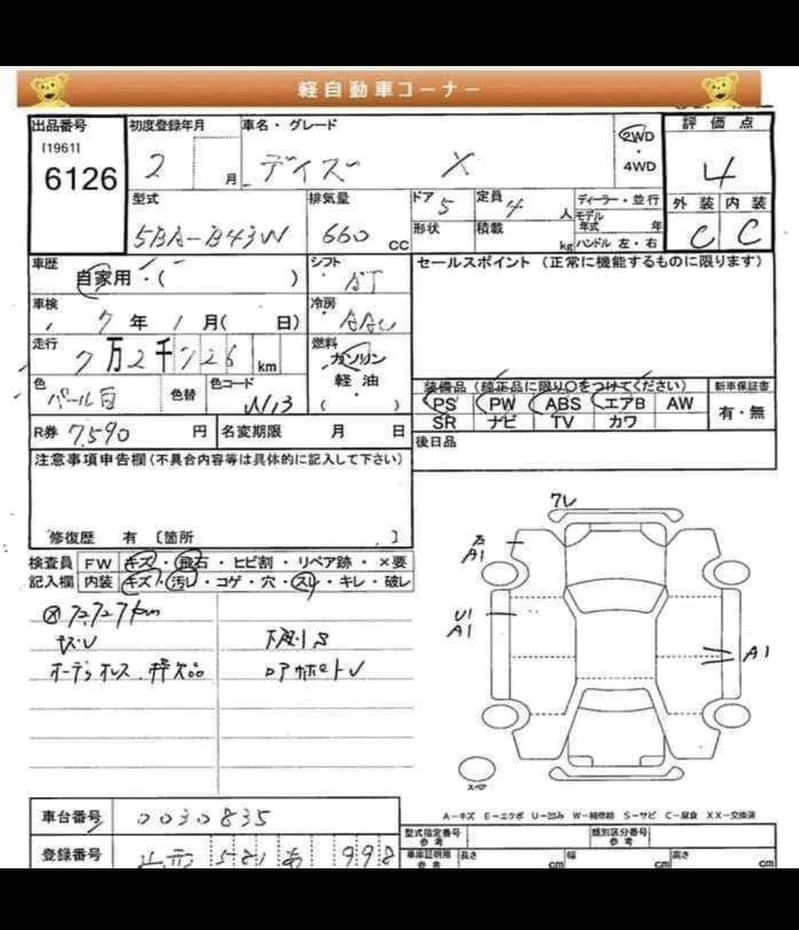 軽自動車コーナー
出品番号
[1961]
6126
初度登録年月
2 月
車名・グレード
デイズ X
2WD
・
4WD
評価点
4
型式
5BA-B43W
排気量
660 cc
ドア 5
定員 4 人
形状
積載 kg
ディーラー・並行
モデル年式 年
ハンドル 左・右
外装 内装
C C
車歴
自家用・( )
シフト
AT
セールスポイント (正常に機能するものに限ります)
車検
7年 1月( 日)
冷房
AAC
走行
7万2千726 km
燃料
ガソリン
・
軽油
( )
色
パール白
色替
色コード
W13
装備品 (純正品に限り○をつけてください)
新車保証書
PS PW ABS エアB AW
有・無
SR ナビ TV カワ
R券 7,590 円
名変期限 月 日
後日品
注意事項申告欄(不具合内容等は具体的に記入して下さい)
修復歴 有 〔箇所 〕
検査員
記入欄
FW キズ・飛石・ヒビ割・リペア跡・×要
内装 キズ・汚レ・コゲ・穴・スレ・キレ・破レ
オーディオレス.枠欠品
下廻りS
A1
U1
A1
A1
スペア
A-キズ E-エクボ U-凹み W-補修跡 S-サビ C-腐食 XX-交換済
車台番号
0030835
登録番号
581 あ 998
型式指定番号
参考
類別区分番号
参考
車庫証明用
参考
長さ cm
幅 cm
高さ cm